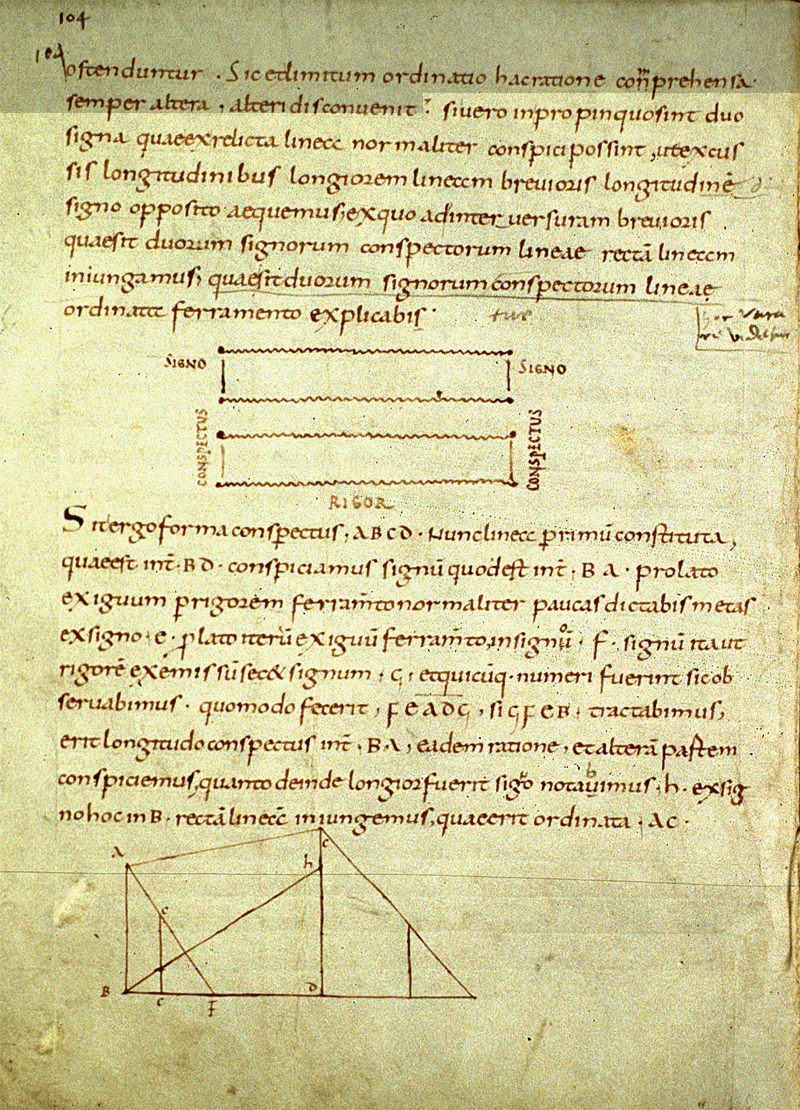 104
104
ostenduntur . Sic et limitum ordinatio hac ratione comprehensa
semper altera , alteri disconvenit . si vero in propinquo sint duo
signa quae ex relicta linea normaliter conspici possint , ut excus
sis longitudinibus longiorem lineam brevioris longitudinē
signo opposito aequemus, ex quo ad inter versuram brevioris .
quaesit duorum signorum conspectorum lineae rectā lineam
iniungamus, quaesit duorum signorum conspectorum lineae
ordinatae ferramento explicabis
SIGNO
SIGNO
CONSPECTUS
CONSPECTUS
RIGOR
Sit ergo forma conspectus, ABCD . Nunc linea primū constituta,
quae est int̄ . B D . conspiciamus signū quod est int̄ . B A . prolato
exiguum p rigorem ferram̄to normaliter paucas dictabis metas
ex signo . e . plato iterū exiguū ferram̄to, in signū . F . signū ita ut
rigorē exemissū sec& signum , G , et quicūq . numeri fuerint sic ob
servabimus . quomodo fecerit , F E A D G , si G F E B , tractabimus,
erit longitudo conspectus int̄ . B A , eadem ratione , et alterā partem
conspiciemus, quanto deinde longior fuerit signo notavimus . h . ex sig
no hoc in B . rectā lineā iniungemus, quae erit ordinata . A C .
A
C
h
e
B
C
F
D